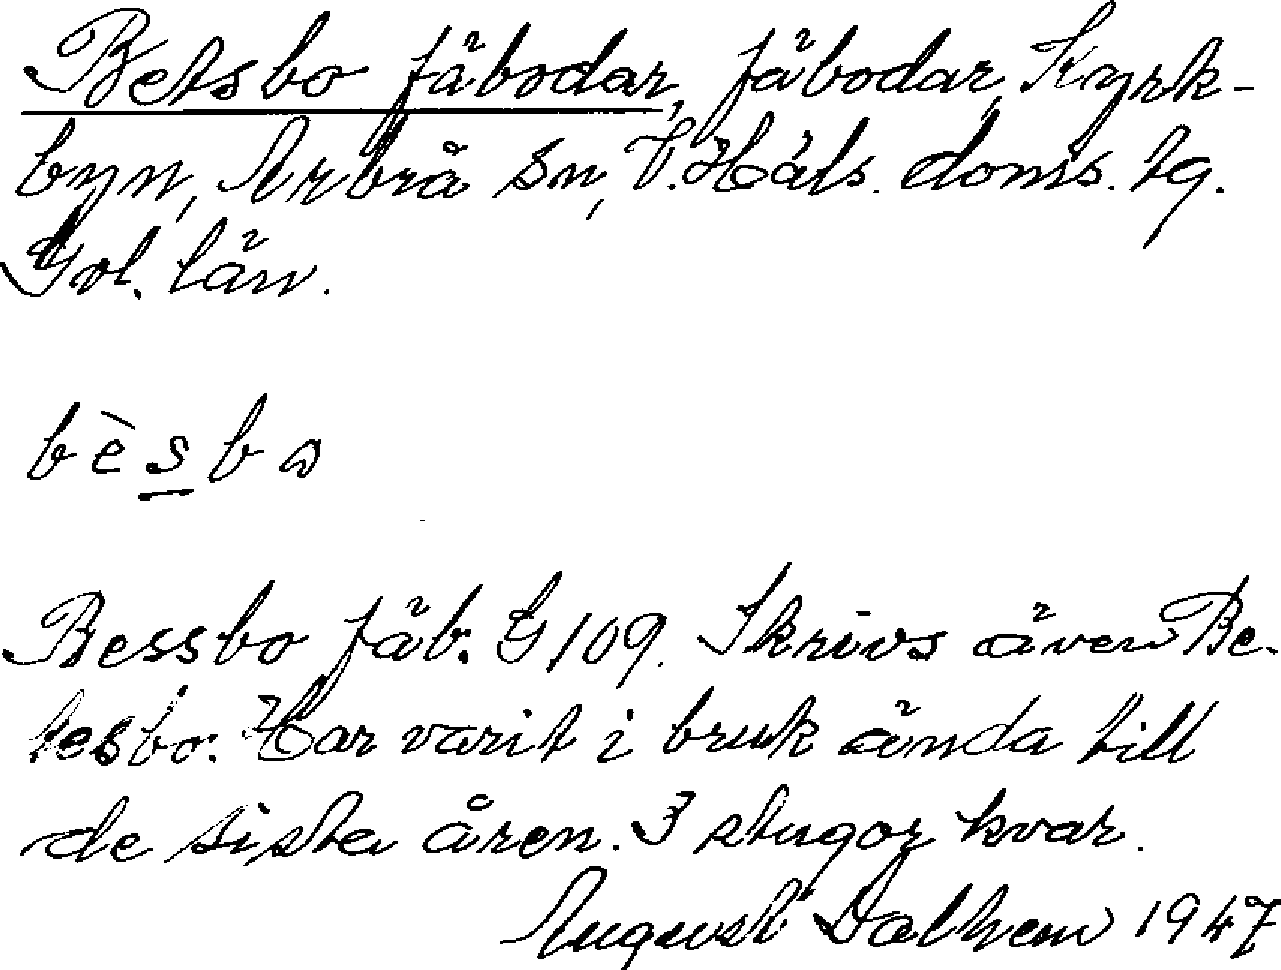 Betsbo fäbodar, fäbodar, Kyrk-
byn, Arbrå sn, V. Häls. doms. tg.
Gvl. län.
bèsbo
Bessbo fäb. G 109. Skrivs även Be-
tesbo. Har varit i bruk ända till
de sista åren. 3 stugor kvar.
August Dalhem 1947